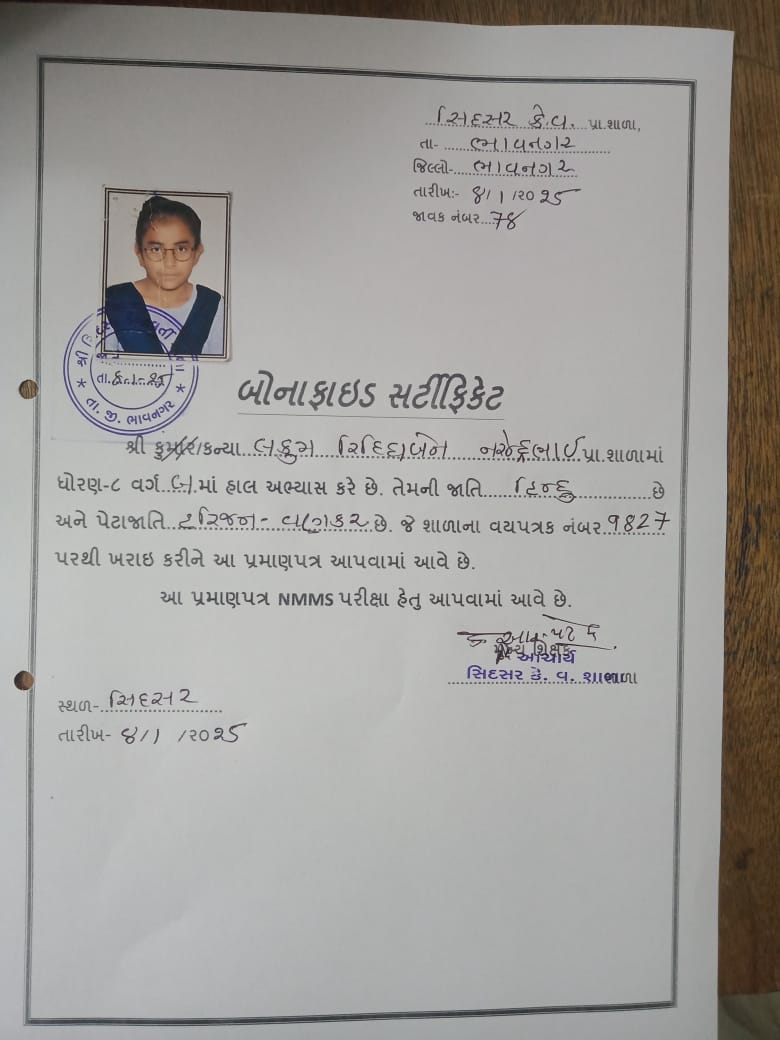 સિદસર કે.વ. પ્રા.શાળા,
તા- ભાવનગર
જિલ્લો- ભાવનગર
તારીખ:- ૪/૧/૨૦૨૫
જાવક નંબર. 78
તા. જી. ભાવનગર
બોનાફાઇડ સર્ટીફિકેટ
શ્રી કુમાર/કન્યા લકુમ રિદ્ધિબેન નરેન્દ્રભાઈ પ્રા.શાળામાં
ધોરણ-૮ વર્ગ બ માં હાલ અભ્યાસ કરે છે. તેમની જાતિ હિન્દુ છે
અને પેટાજાતિ હરિજન - વણકર છે. જે શાળાના વયપત્રક નંબર 9827
પરથી ખરાઇ કરીને આ પ્રમાણપત્ર આપવામાં આવે છે.
આ પ્રમાણપત્ર NMMS પરીક્ષા હેતુ આપવામાં આવે છે.
મુખ્ય શિક્ષક
આચાર્ય
સિદસર કે. વ. શાળા
સ્થળ- સિદસર
તારીખ- ૪/૧/૨૦૨૫